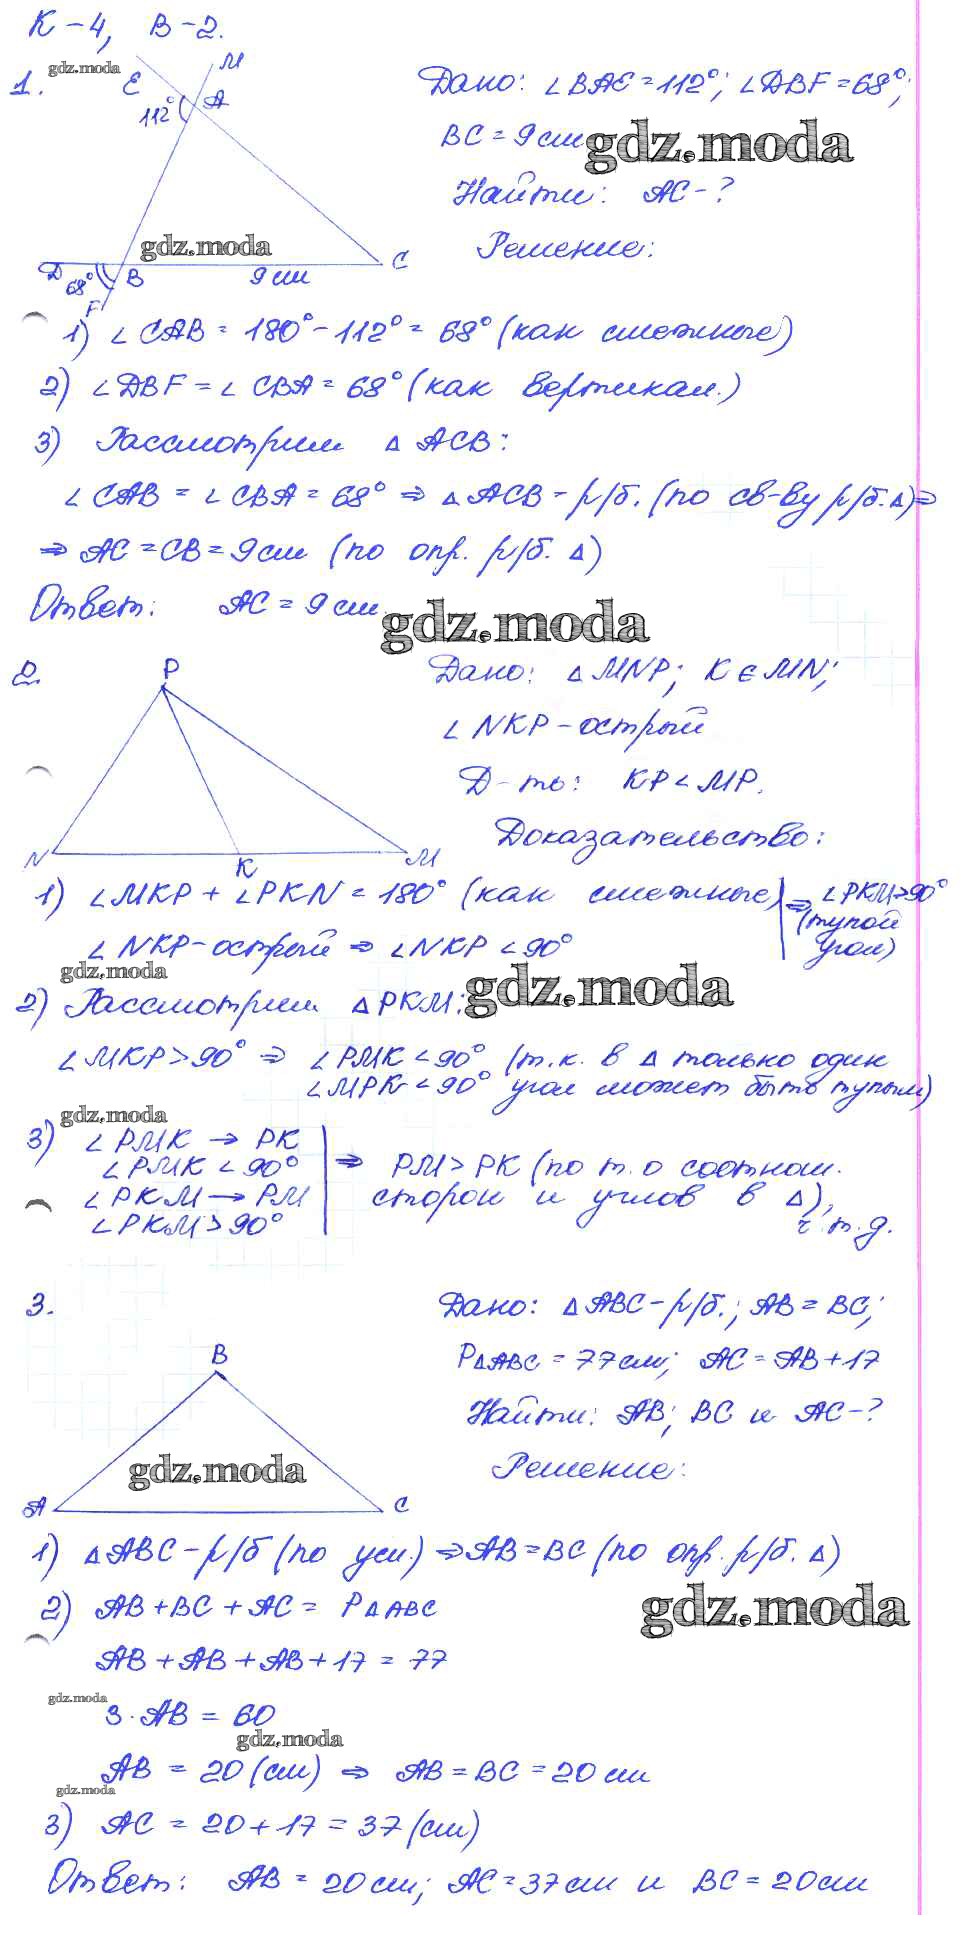 К-4, В-2.
gdz.moda
1.
E
M
A
112°
Дано: ∠BAE = 112°; ∠DBF = 68°;
BC = 9 см
gdz.moda
Найти: AC - ?
Решение:
gdz.moda
D
68°
B
F
9 см
C
1) ∠CAB = 180° - 112° = 68° (как смежные)
2) ∠DBF = ∠CBA = 68° (как вертикал.)
3) Рассмотрим △ACB:
∠CAB = ∠CBA = 68° ⇒ △ACB - р/б. (по св-ву р/б. △) ⇒
⇒ AC = CB = 9 см (по опр. р/б. △)
Ответ: AC = 9 см.
gdz.moda
2.
P
N
K
M
Дано: △MNP; K ∈ MN;
∠NKP - острый
Д-ть: KP < MP.
Доказательство:
1) ∠MKP + ∠PKN = 180° (как смежные) ⇒ ∠PKM > 90°
(тупой
угол)
∠NKP - острый ⇒ ∠NKP < 90°
gdz.moda
gdz.moda
2) Рассмотрим △PKM:
∠MKP > 90° ⇒ ∠PMK < 90° (т.к. в △ только один
∠MPK < 90° угол может быть тупым)
gdz.moda
3) ∠PMK → PK
∠PMK < 90°
∠PKM → PM
∠PKM > 90°
⇒ PM > PK (по т. о соотнош.
сторон и углов в △),
ч.т.д.
3.
B
A
C
gdz.moda
Дано: △ABC - р/б.; AB = BC;
P△ABC = 77 см; AC = AB + 17
Найти: AB; BC и AC - ?
Решение:
1) △ABC - р/б (по усл.) ⇒ AB = BC (по опр. р/б. △)
2) AB + BC + AC = P△ABC
gdz.moda
AB + AB + AB + 17 = 77
gdz.moda
3 · AB = 60
gdz.moda
AB = 20 (см) ⇒ AB = BC = 20 см
gdz.moda
3) AC = 20 + 17 = 37 (см)
Ответ: AB = 20 см; AC = 37 см и BC = 20 см